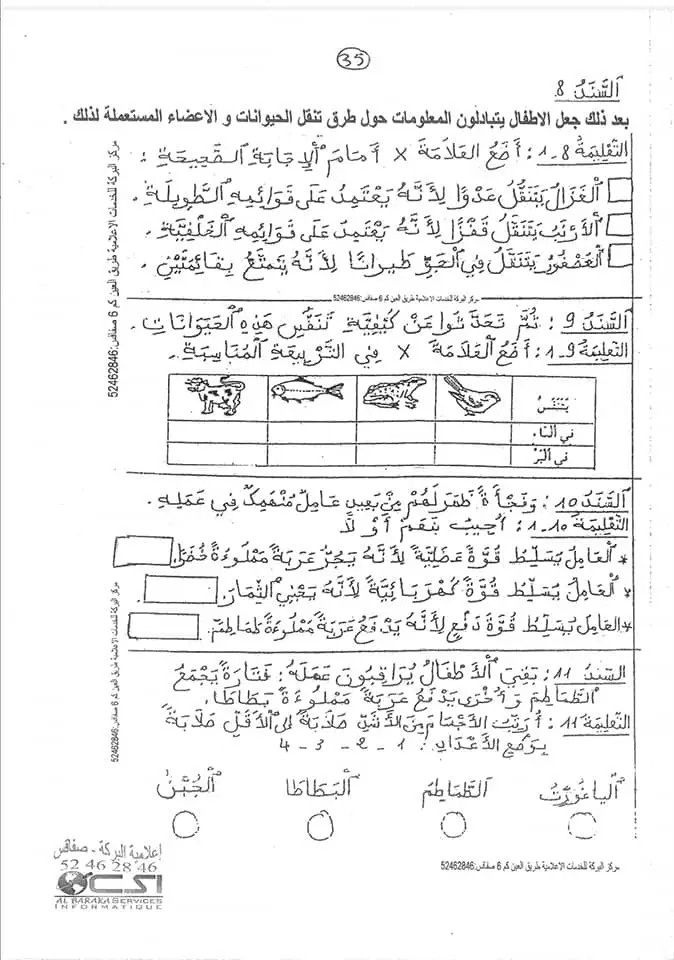 35
اَلسَّنَدُ 8
بعد ذلك جعل الاطفال يتبادلون المعلومات حول طرق تنقل الحيوانات و الاعضاء المستعملة لذلك .
التَّعْلِيمَةُ 8-1 : أَضَعُ العَلَامَةَ × أَمَامَ الْإِجَابَةِ الصَّحِيحَةِ :
الْغَزَالُ يَتَنَقَّلُ عَدْوًا لِأَنَّهُ يَعْتَمِدُ عَلَى قَوَائِمِهِ الطَّوِيلَةِ .
الْأَرْنَبُ يَتَنَقَّلُ قَفْزًا لِأَنَّهُ يَعْتَمِدُ عَلَى قَوَائِمِهِ الْخَلْفِيَّةِ .
الْعُصْفُورُ يَتَنَقَّلُ فِي الْجَوِّ طَيَرَانًا لِأَنَّهُ يَتَمَتَّعُ بِقَائِمَتَيْنِ .
مركز البركة للخدمات الاعلامية طريق العين كم 6 صفاقس:52462846
السَّنَدُ 9 : ثُمَّ تَحَدَّثُوا عَنْ كَيْفِيَّةِ تَنَفُّسِ هَذِهِ الْحَيَوَانَاتِ .
التَّعْلِيمَةُ 9-1 : أَضَعُ الْعَلَامَةَ × فِي التَّرْبِيعَةِ الْمُنَاسِبَةِ .
يَتَنَفَّسُ
فِي الْمَاءِ
فِي الْبَرِّ
السَّنَدُ 10 : وَفَجْأَةً ظَهَرَ لَهُمْ مِنْ بَعِيدٍ عَامِلٌ مُنْهَمِكٌ فِي عَمَلِهِ .
التَّعْلِيمَةُ 10-1 : أُجِيبُ بِنَعَمْ أَوْ لَا
* الْعَامِلُ يُسَلِّطُ قُوَّةً عَضَلِيَّةً لِأَنَّهُ يَجُرُّ عَرَبَةً مَمْلُوءَةً خُضَرًا.
* الْعَامِلُ يُسَلِّطُ قُوَّةً كَهْرَبَائِيَّةً لِأَنَّهُ يَجْنِي الثِّمَارَ.
* الْعَامِلُ يُسَلِّطُ قُوَّةَ دَفْعٍ لِأَنَّهُ يَدْفَعُ عَرَبَةً مَمْلُوءَةً طَمَاطِمَ.
السَّنَدُ 11 : بَقِيَ الْأَطْفَالُ يُرَاقِبُونَ عَمَلَهُ : فَتَارَةً يَجْمَعُ
الطَّمَاطِمَ وَ أُخْرَى يَدْفَعُ عَرَبَةً مَمْلُوءَةً بَطَاطَا.
التَّعْلِيمَةُ 11 : أُرَتِّبُ الْأَجْسَامَ مِنَ الْأَشَدِّ صَلَابَةً إِلَى الْأَقَلِّ صَلَابَةً
بِوَضْعِ الْأَعْدَادِ : 1 - 2 - 3 - 4
الْيَاغُورْتُ الطَّمَاطِمُ الْبَطَاطَا الْجُبْنُ
مركز البركة للخدمات الاعلامية طريق العين كم 6 صفاقس:52462846
مركز البركة للخدمات الاعلامية طريق العين كم 6 صفاقس:52462846
مركز البركة للخدمات الاعلامية طريق العين كم 6 صفاقس:52462846
إعلامية البركة - صفاقس
52 46 28 46
CSI
AL BARAKA SERVICES
INFORMATIQUE